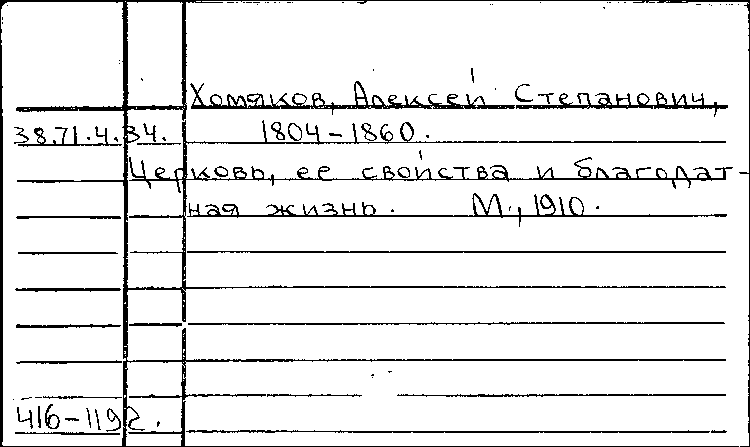 Хомяков, Алексей Степанович,
38.71.4.84. 1804-1860.
Церковь, ее свойства и благодат-
ная жизнь. М., 1910.
416-1192.